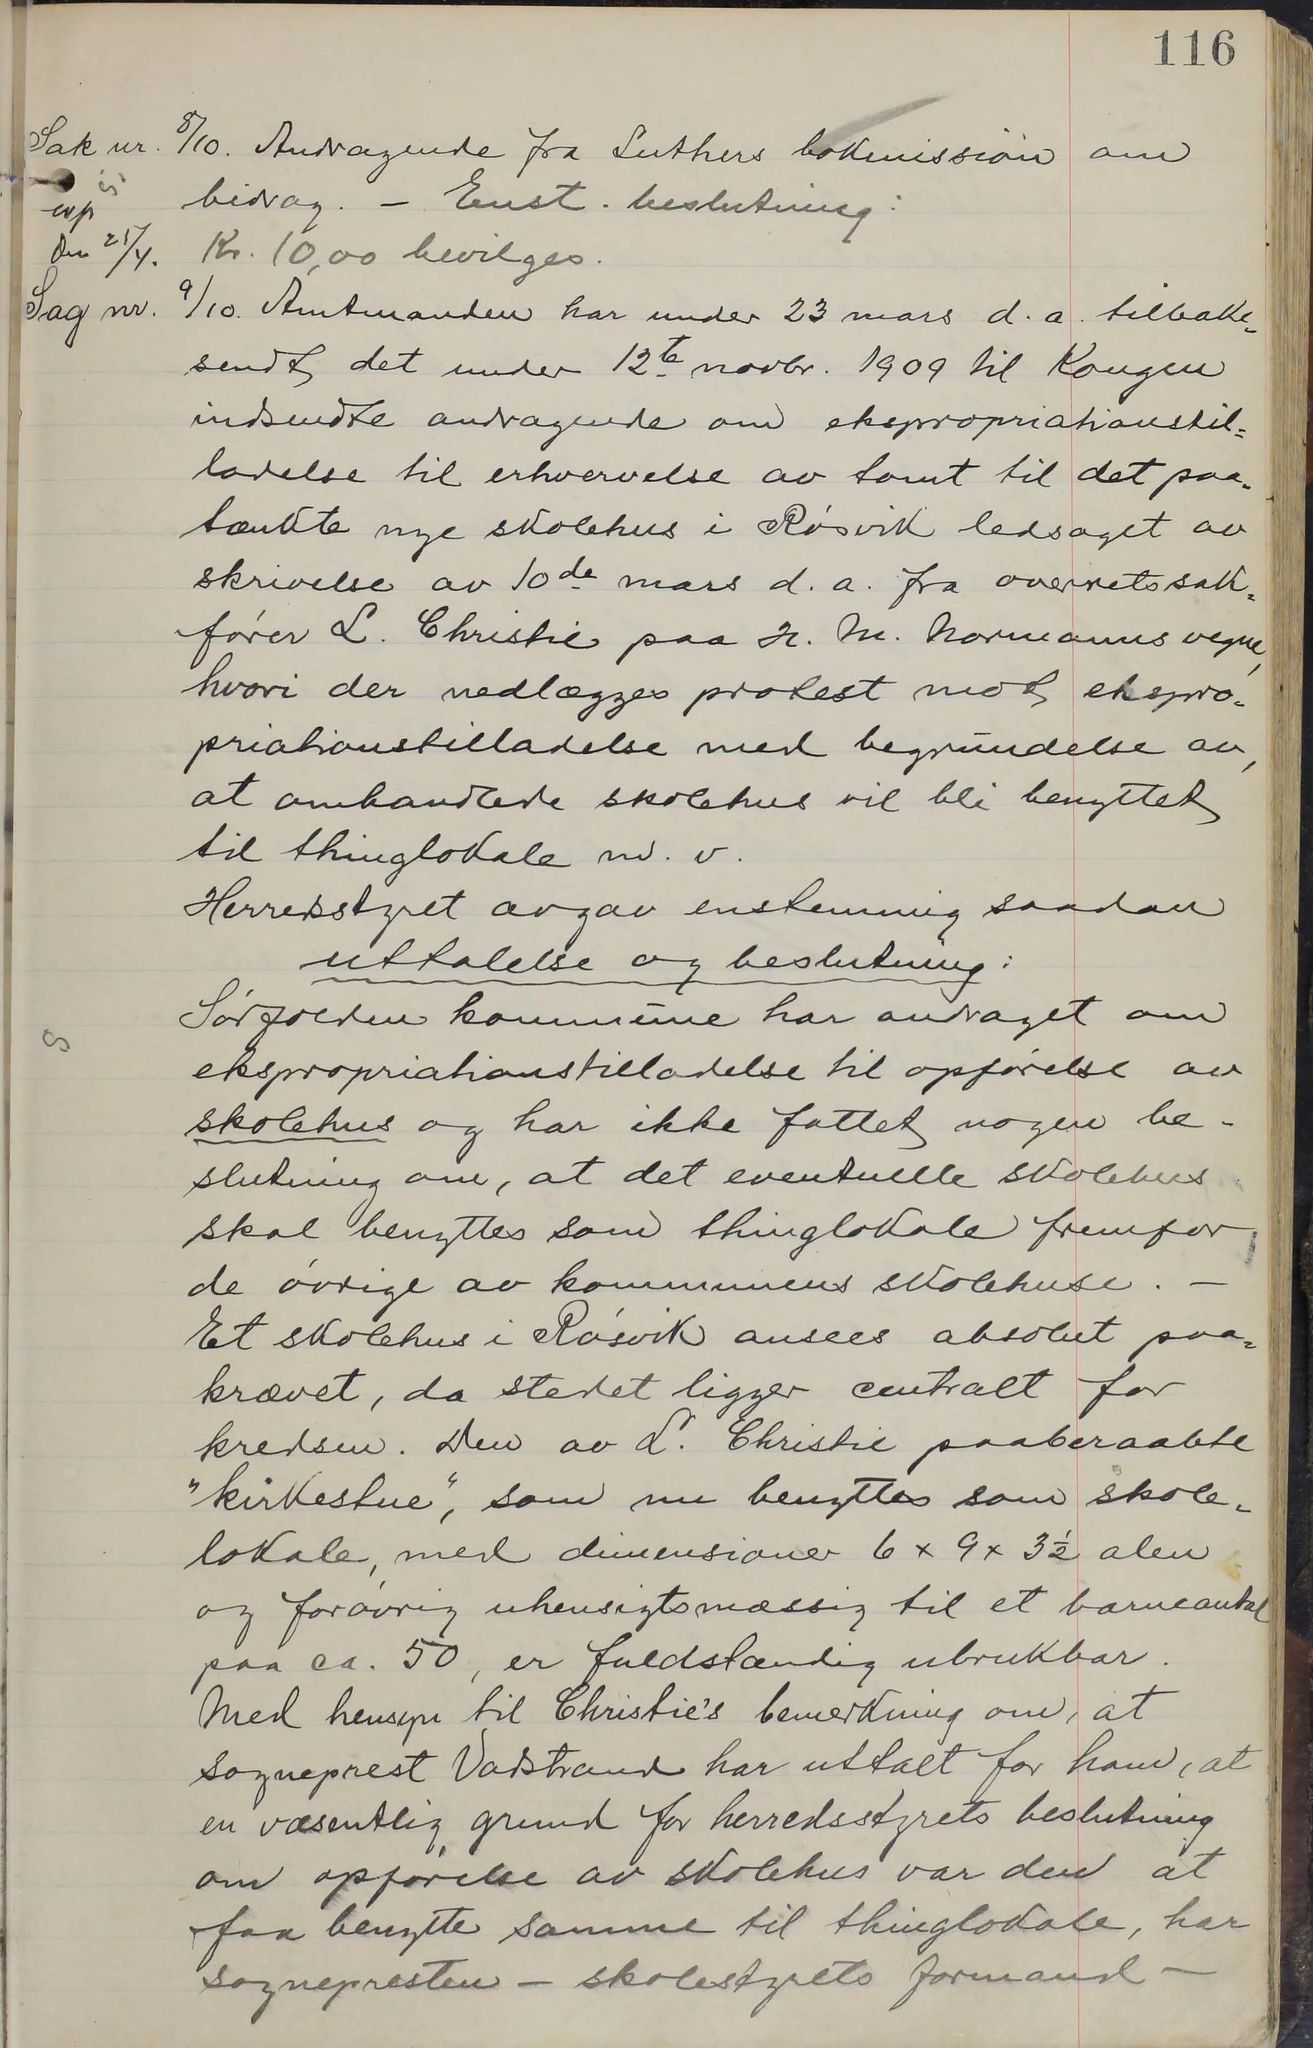 116
Sak nr. 8/10. Andragende fra Luthers bokmission om
bidrag. — Enst. beslutning:
exp
den 21/4. Kr. 10,00 bevilges.
Sag nr. 9/10. Amtmanden har under 23 mars d. a. tilbake-
sendt det under 12te novbr. 1909 til Kongen
indsendte andragende om ekspropriationstil=
ladelse til erhvervelse av tomt til det paa-
tænkte nye skolehus i Røsvik ledsaget av
skrivelse av 10de mars d. a. fra overretssak-
fører L. Christie paa H. M. Normanns vegne,
hvori der nedlægges protest mot ekspro-
priationstilladelse med begrundelse av,
at omhandlede skolehus vil bli benyttet
til thinglokale m. v.
Herredsstyret avgav enstemmig saadan
uttalelse og beslutning:
Sørfolden kommune har andraget om
ekspropriationstilladelse til opførelse av
skolehus og har ikke fattet nogen be-
slutning om, at det eventuelle skolehus
skal benyttes som thinglokale fremfor
de øvrige av kommunens skolehuse. —
Et skolehus i Røsvik ansees absolut paa-
krævet, da stedet ligger centralt for
kredsen. Den av L. Christie paaberaabte
"kirkestue", som nu benyttes som skole-
lokale, med dimensioner 6 x 9 x 3½ alen
og forøvrig uhensigtsmæssig til et barneantal
paa ca. 50, er fuldstændig ubrukbar.
Med hensyn til Christie's bemerkning om, at
sogneprest Vadstrand har uttalt for ham, at
en væsentlig grund for herredsstyrets beslutning
om opførelse av skolehus var den at
faa benytte samme til thinglokale, har
sognepresten — skolestyrets formand —